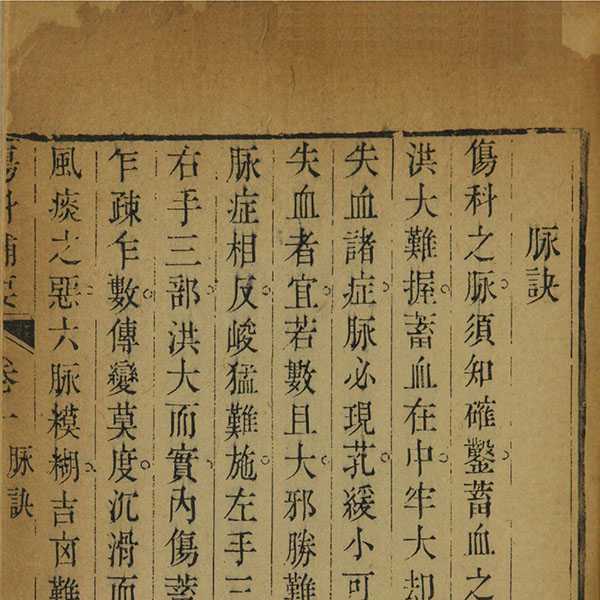 脉訣
傷科之脉須知確鑿蓄血之
洪大難握蓄血在中牢大却
失血諸症脉必現芤緩小可
失血者宜若數且大邪勝難
脉症相反峻猛難施左手三
右手三部洪大而實內傷蓄
乍疎乍數傳變莫度沉滑而
風痰之惡六脉模糊吉㐫難
傷科補要 卷一 脉訣